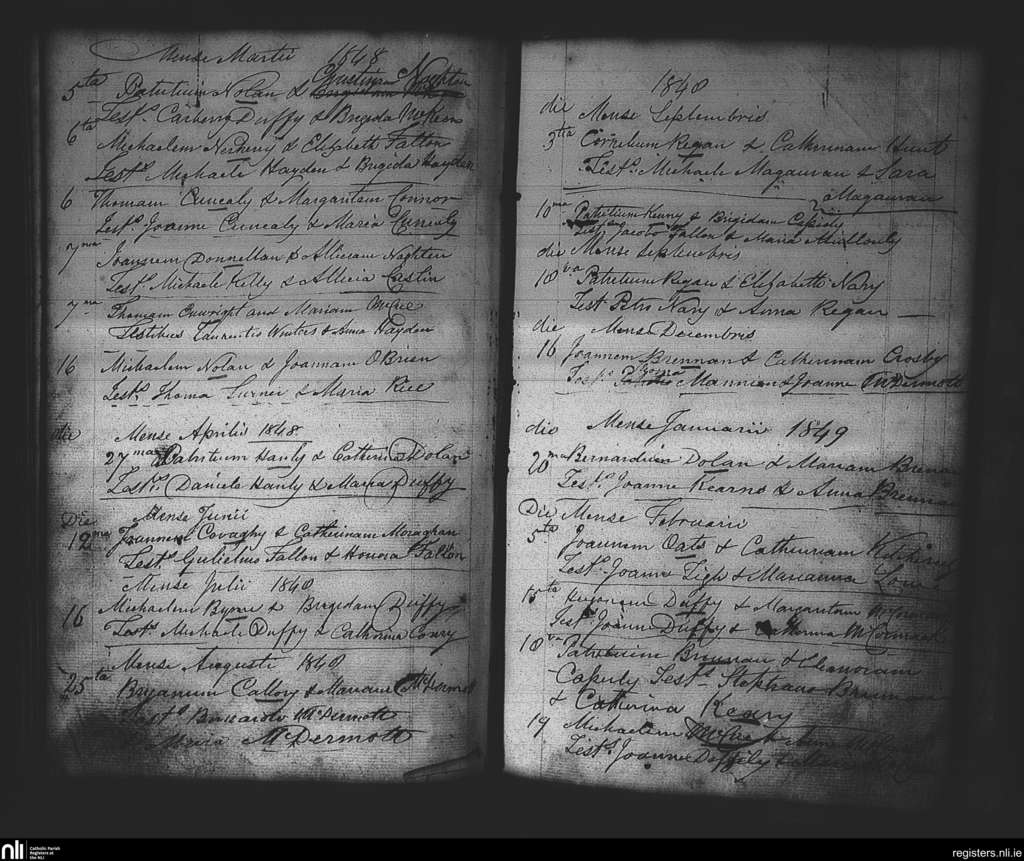 Mense Martii 1848
Christinam Naghten
5ta Patritium Nolan &
Test.s Carberry Duffy & Brigida
6ta Michaelem & Elizabeth Fallon
Test.s Michaele Hayden & Brigida Hayden
6 Thomam Cunealy & Margaritam Connor
Test.s Joanne Cunealy & Maria Cunealy
7ma Joannem Donnellan & Alliciam Naghten
Test.s Michaele Kelly & Allicia Caslin
7ma Thomam and Mariam McGee
Testibus Laurentio & Anna Hayden
16 Michaelem Nolan & Joannam O'Brien
Test.s Thoma Turner & Maria Rice
die Mense Aprilii 1848
27ma Patritium Hanly & Catherina Dolan
Test.s Daniele Hanly & Maria Duffy
Die Mense Junii
12ma Joannem & Catherinam Moraghan
Test.s Gulielmo Fallon & Honora Fallon
Mense Julii 1848
16 Michaelem Byrne & Brigidam Duffy
Test.s Michaele Duffy & Catherina Conry
Mense Augusti 1848
25ta Bryanum Callory & Mariam McDermott
Test.s Bernardo McDermott
Maria McDermott
1848
die Mense Septembris
3tia Cornelium Regan & Catherinam Hunt
Test.s Michaele Magauran & Sara
Magauran
10ma Patritium Kenny & Brigidam Cassidy
Test.s Jacobo Fallon & Maria
die Mense Septembris
18va Patritium Regan & Elizabeth Nary
Test Ptro Nary & Anna Regan
die Mense Decembris
16 Joannem Brennan & Catherinam Crosby
Thoma
Test.s Mannion & Joanne McDermott
die Mense Januarii 1849
20ma Bernardum Dolan & Mariam Brennan
Test.s Joanne Kearns & Anna Brennan
Die Mense Februarii
5ta Joannem Oats & Catherinam
Test.s Joanne Tigh & Marianna
15ta Duffy & Margaritam
Test.s Joanne Duffy & Catherina McCormack
18va Patritium Brennan & Eleanoram
Caputy Test.s Stephano Brennan
& Catherina Keary
19 Michaelem McGee &
Test.s Joanne Deffily &
nli
Catholic Parish
Registers at
the NLI
registers.nli.ie